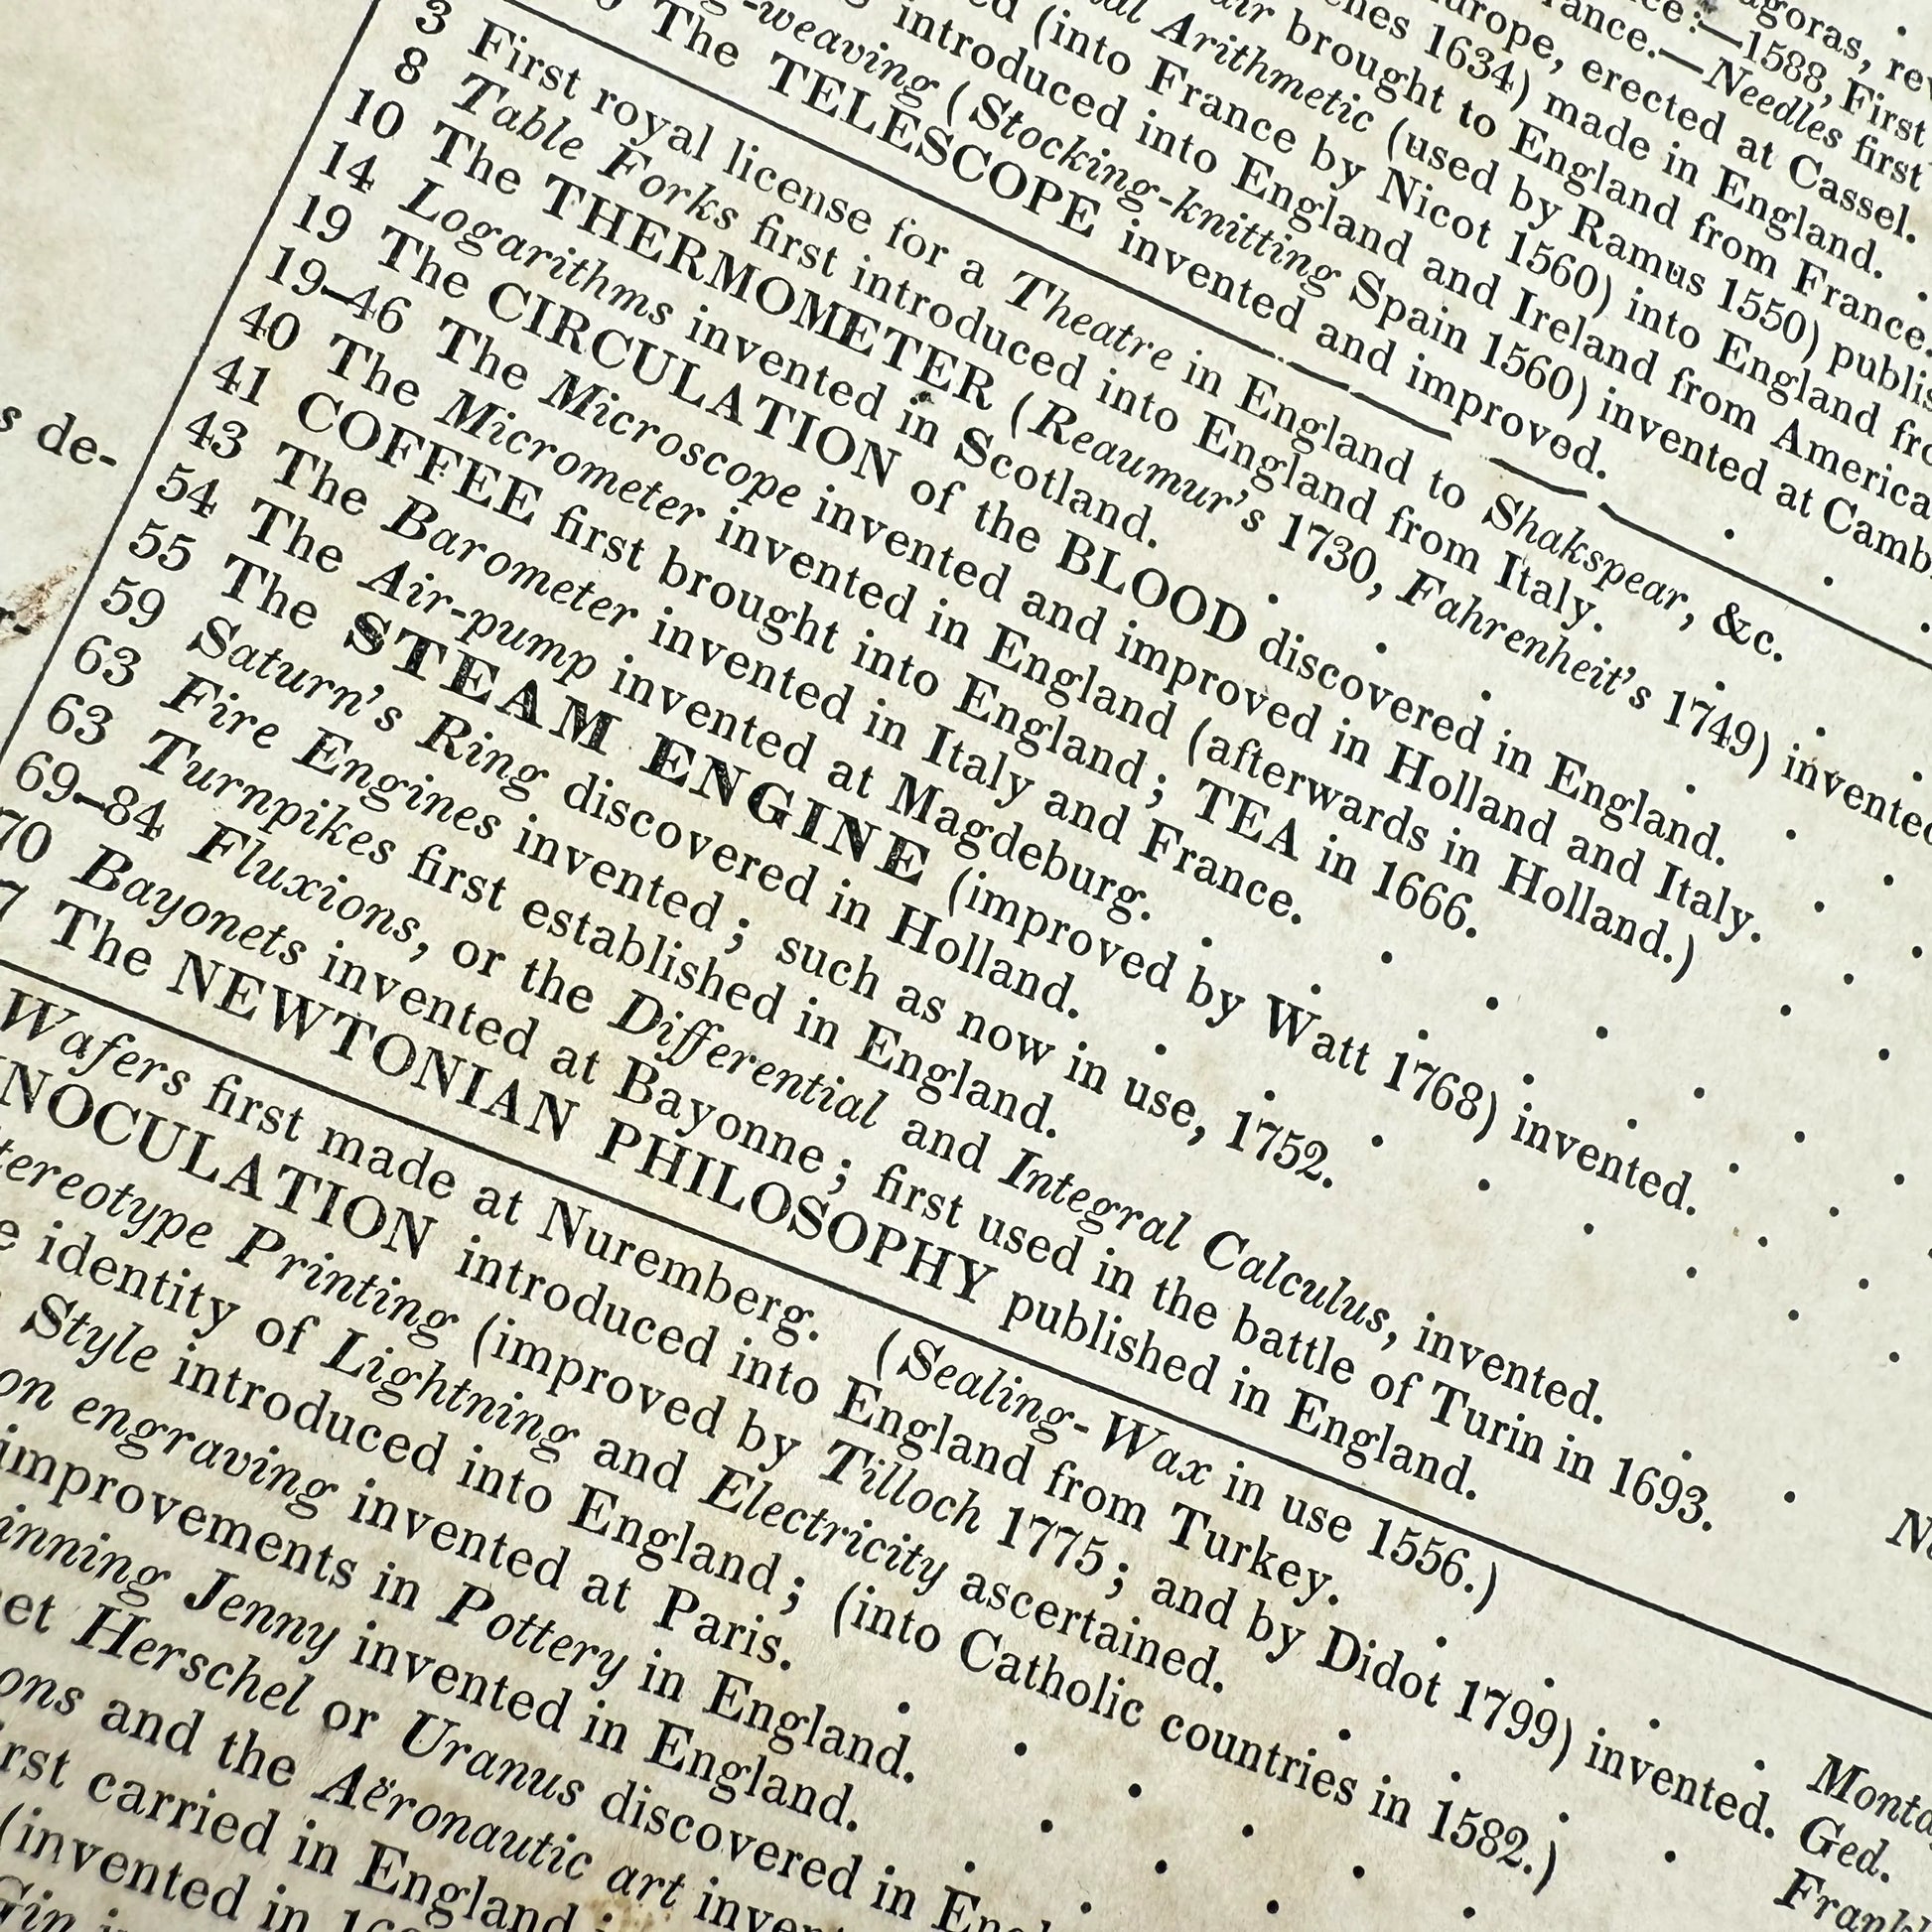 agoras, rev
ce:—1588, First
rance.—Needles first
urope, erected at Cassel.
enes 1634) made in England.
air brought to England from France.
al Arithmetic (used by Ramus 1550) publis
ed (into France by Nicot 1560) into England fro
introduced into England and Ireland from America
g-weaving (Stocking-knitting Spain 1560) invented at Camb
The TELESCOPE invented and improved.
3 First royal license for a Theatre in England to Shakspear, &c.
8 Table Forks first introduced into England from Italy.
10 The THERMOMETER (Reaumur's 1730, Fahrenheit's 1749) invented
14 Logarithms invented in Scotland.
19 The CIRCULATION of the BLOOD discovered in England.
19–46 The Microscope invented and improved in Holland and Italy.
40 The Micrometer invented in England (afterwards in Holland.)
41 COFFEE first brought into England; TEA in 1666.
43 The Barometer invented in Italy and France.
54 The Air-pump invented at Magdeburg.
55 The STEAM ENGINE (improved by Watt 1768) invented.
59 Saturn's Ring discovered in Holland.
63 Fire Engines invented; such as now in use, 1752.
63 Turnpikes first established in England.
69–84 Fluxions, or the Differential and Integral Calculus, invented.
70 Bayonets invented at Bayonne; first used in the battle of Turin in 1693.
7 The NEWTONIAN PHILOSOPHY published in England.
Wafers first made at Nuremberg. (Sealing-Wax in use 1556.)
NOCULATION introduced into England from Turkey. Monta
tereotype Printing (improved by Tilloch 1775; and by Didot 1799) invented. Ged.
e identity of Lightning and Electricity ascertained. Frankl
Style introduced into England; (into Catholic countries in 1582.)
on engraving invented at Paris.
improvements in Pottery in England.
inning Jenny invented in England.
et Herschel or Uranus discovered in Eng
ons and the Aëronautic art inven
rst carried in England
(invented in
Gin
s de-
r-